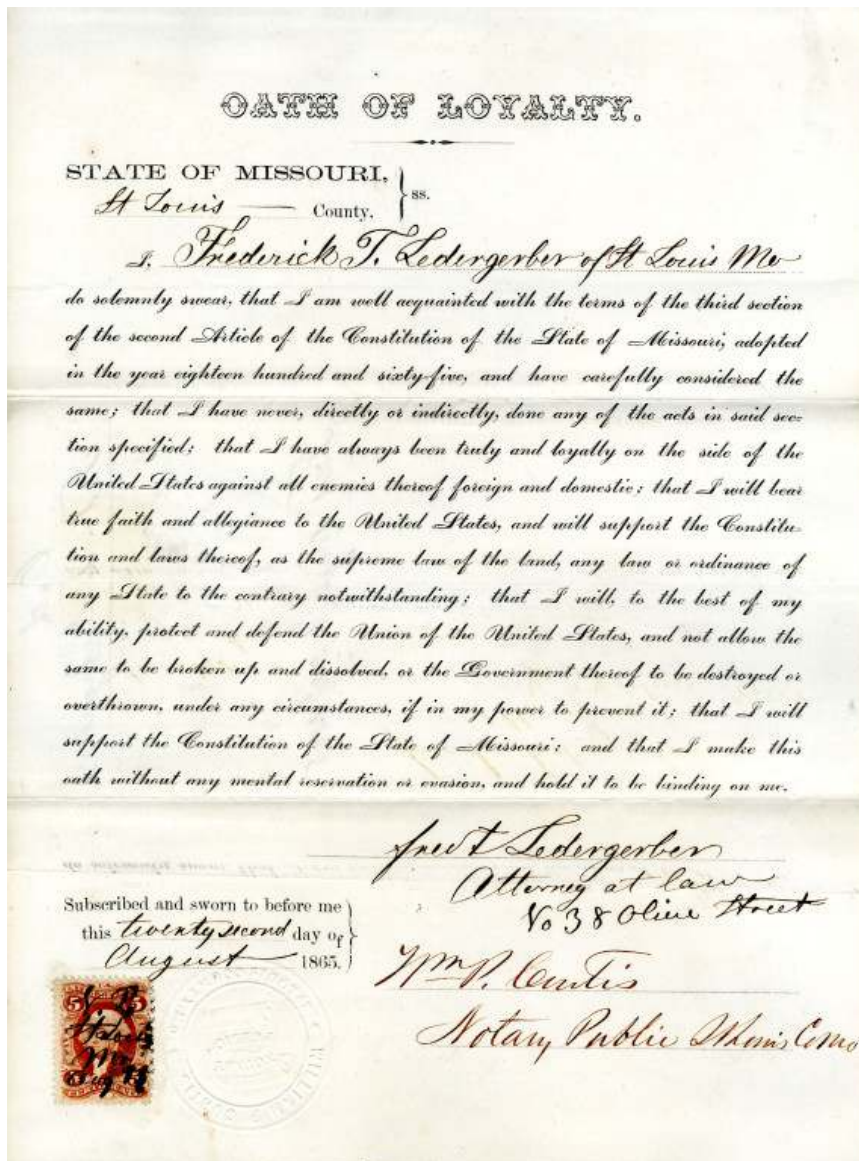 OATH OF LOYALTY.
STATE OF MISSOURI,
St Louis County. } ss.
I, Frederick T. Ledergerber of St Louis Mo
do solemnly swear, that I am well acquainted with the terms of the third section
of the second Article of the Constitution of the State of Missouri, adopted
in the year eighteen hundred and sixty-five, and have carefully considered the
same; that I have never, directly or indirectly, done any of the acts in said sec-
tion specified; that I have always been truly and loyally on the side of the
United States against all enemies thereof foreign and domestic; that I will bear
true faith and allegiance to the United States, and will support the Constitu-
tion and laws thereof, as the supreme law of the land, any law or ordinance of
any State to the contrary notwithstanding; that I will, to the best of my
ability, protect and defend the Union of the United States, and not allow the
same to be broken up and dissolved, or the Government thereof to be destroyed or
overthrown, under any circumstances, if in my power to prevent it; that I will
support the Constitution of the State of Missouri; and that I make this
oath without any mental reservation or evasion, and hold it to be binding on me.
fred T Ledergerber
Attorney at law
No 38 Olive Street
Subscribed and sworn to before me
this twenty second day of
August 1865.
Wm P. Curtis
Notary Public St Louis Co Mo
5 5
St Louis
Mo
Aug